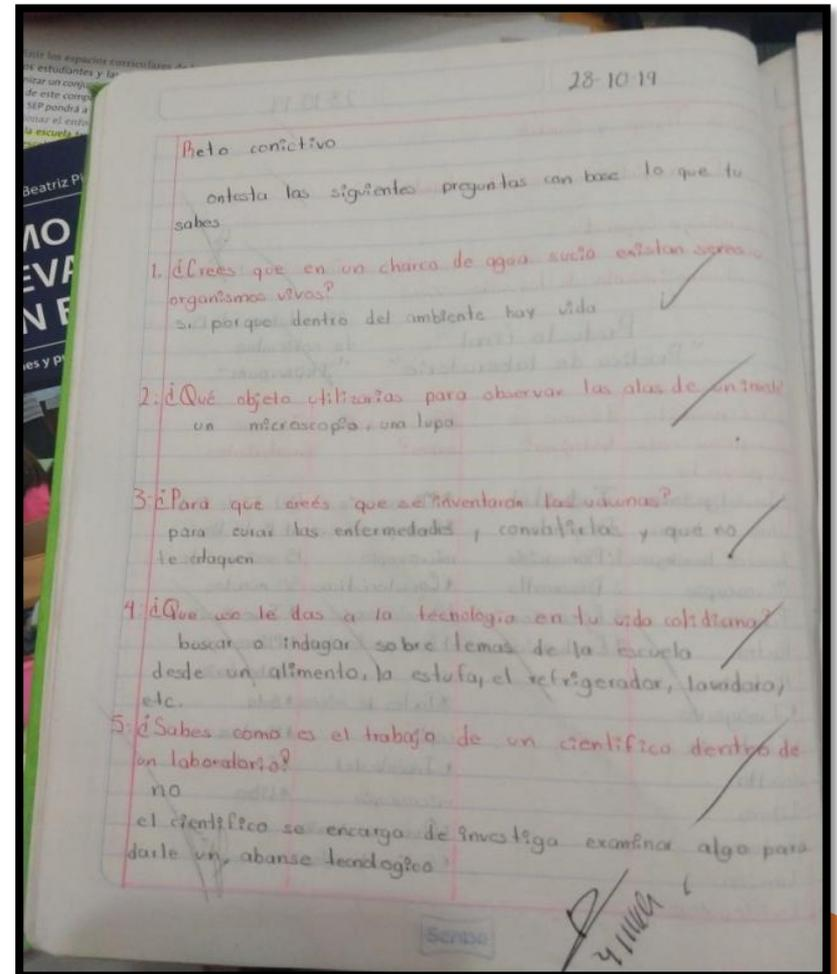 os estudiantes y la
de este comp
SEP pondrá a
la escuela
Beatriz Pi
MO
EVA
N E
es y p
28-10-19
Reto conictivo
ontesta las siguientes preguntas con base lo que tu
sabes
1. ¿Crees que en un charco de agua sucia existan seres
organismos vivos?
si porque dentro del ambiente hay vida
2. ¿Qué objeto utilizarias para observar las alas de un
un microscopio, una lupa
3. ¿Para que creés que se inventaron las vacunas?
para curar las enfermedades, y que no
te ataquen
4. ¿Que uso le das a la tecnologia en tu vida cotidiana?
buscar o indagar sobre temas de la escuela
desde un alimento, la estufa, el refrigerador, lavadora,
etc.
5. ¿Sabes como es el trabajo de un cientifico dentro de
un laboratorio?
no
el cientifico se encarga de investiga examinar algo para
darle un, abanse tecnologico
Scribe